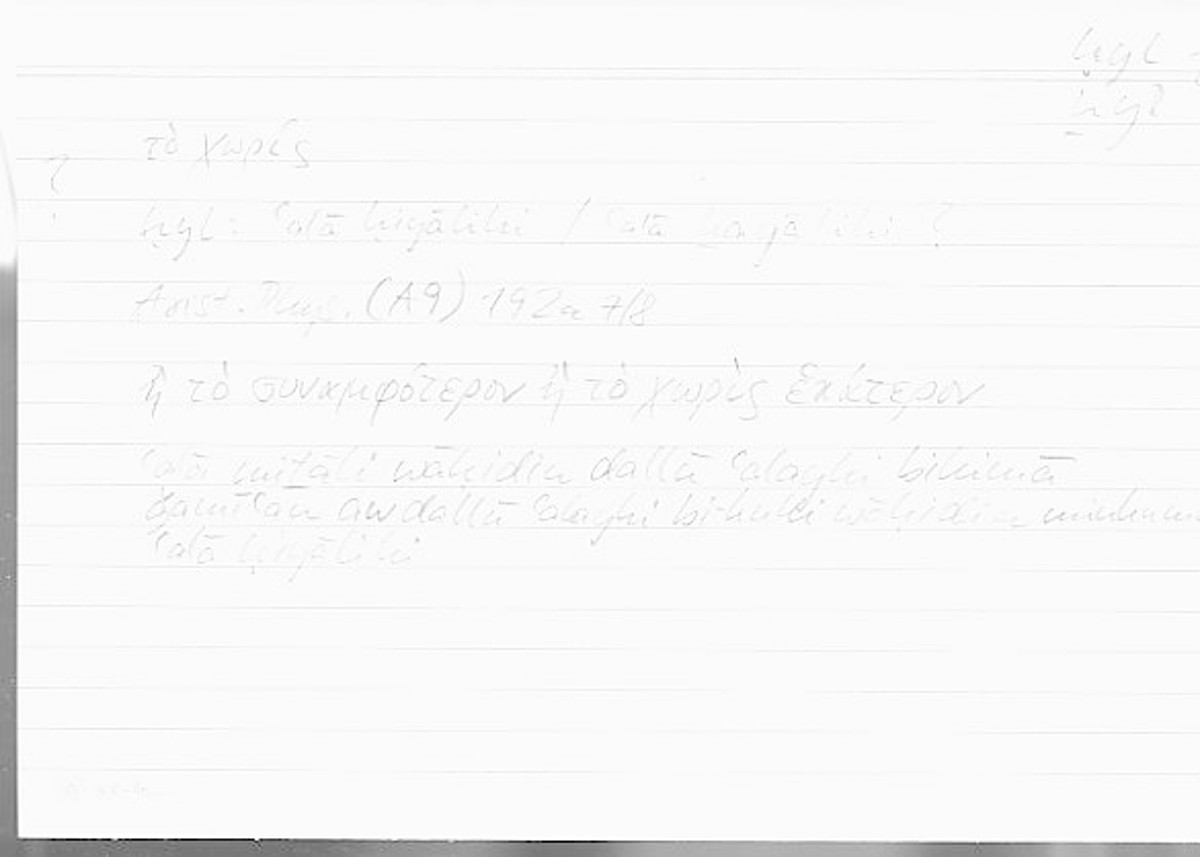 ḥyl
ḫyl
τὸ χωρίς
?
ḥyl: ʿalā ḥiyālihi / ʿalā ḫayālihi ?
Arist. Phys. (A9) 192a 7/8
ἢ τὸ συναμφότερον ἢ τὸ χωρὶς ἑκάτερον
ʿalā miṯāli wāḥidin dallū ʿalayhi bihimā
ǧamīʿan aw dallū ʿalayhi bikulli wāḥidin minhumā
ʿalā ḥiyālihi